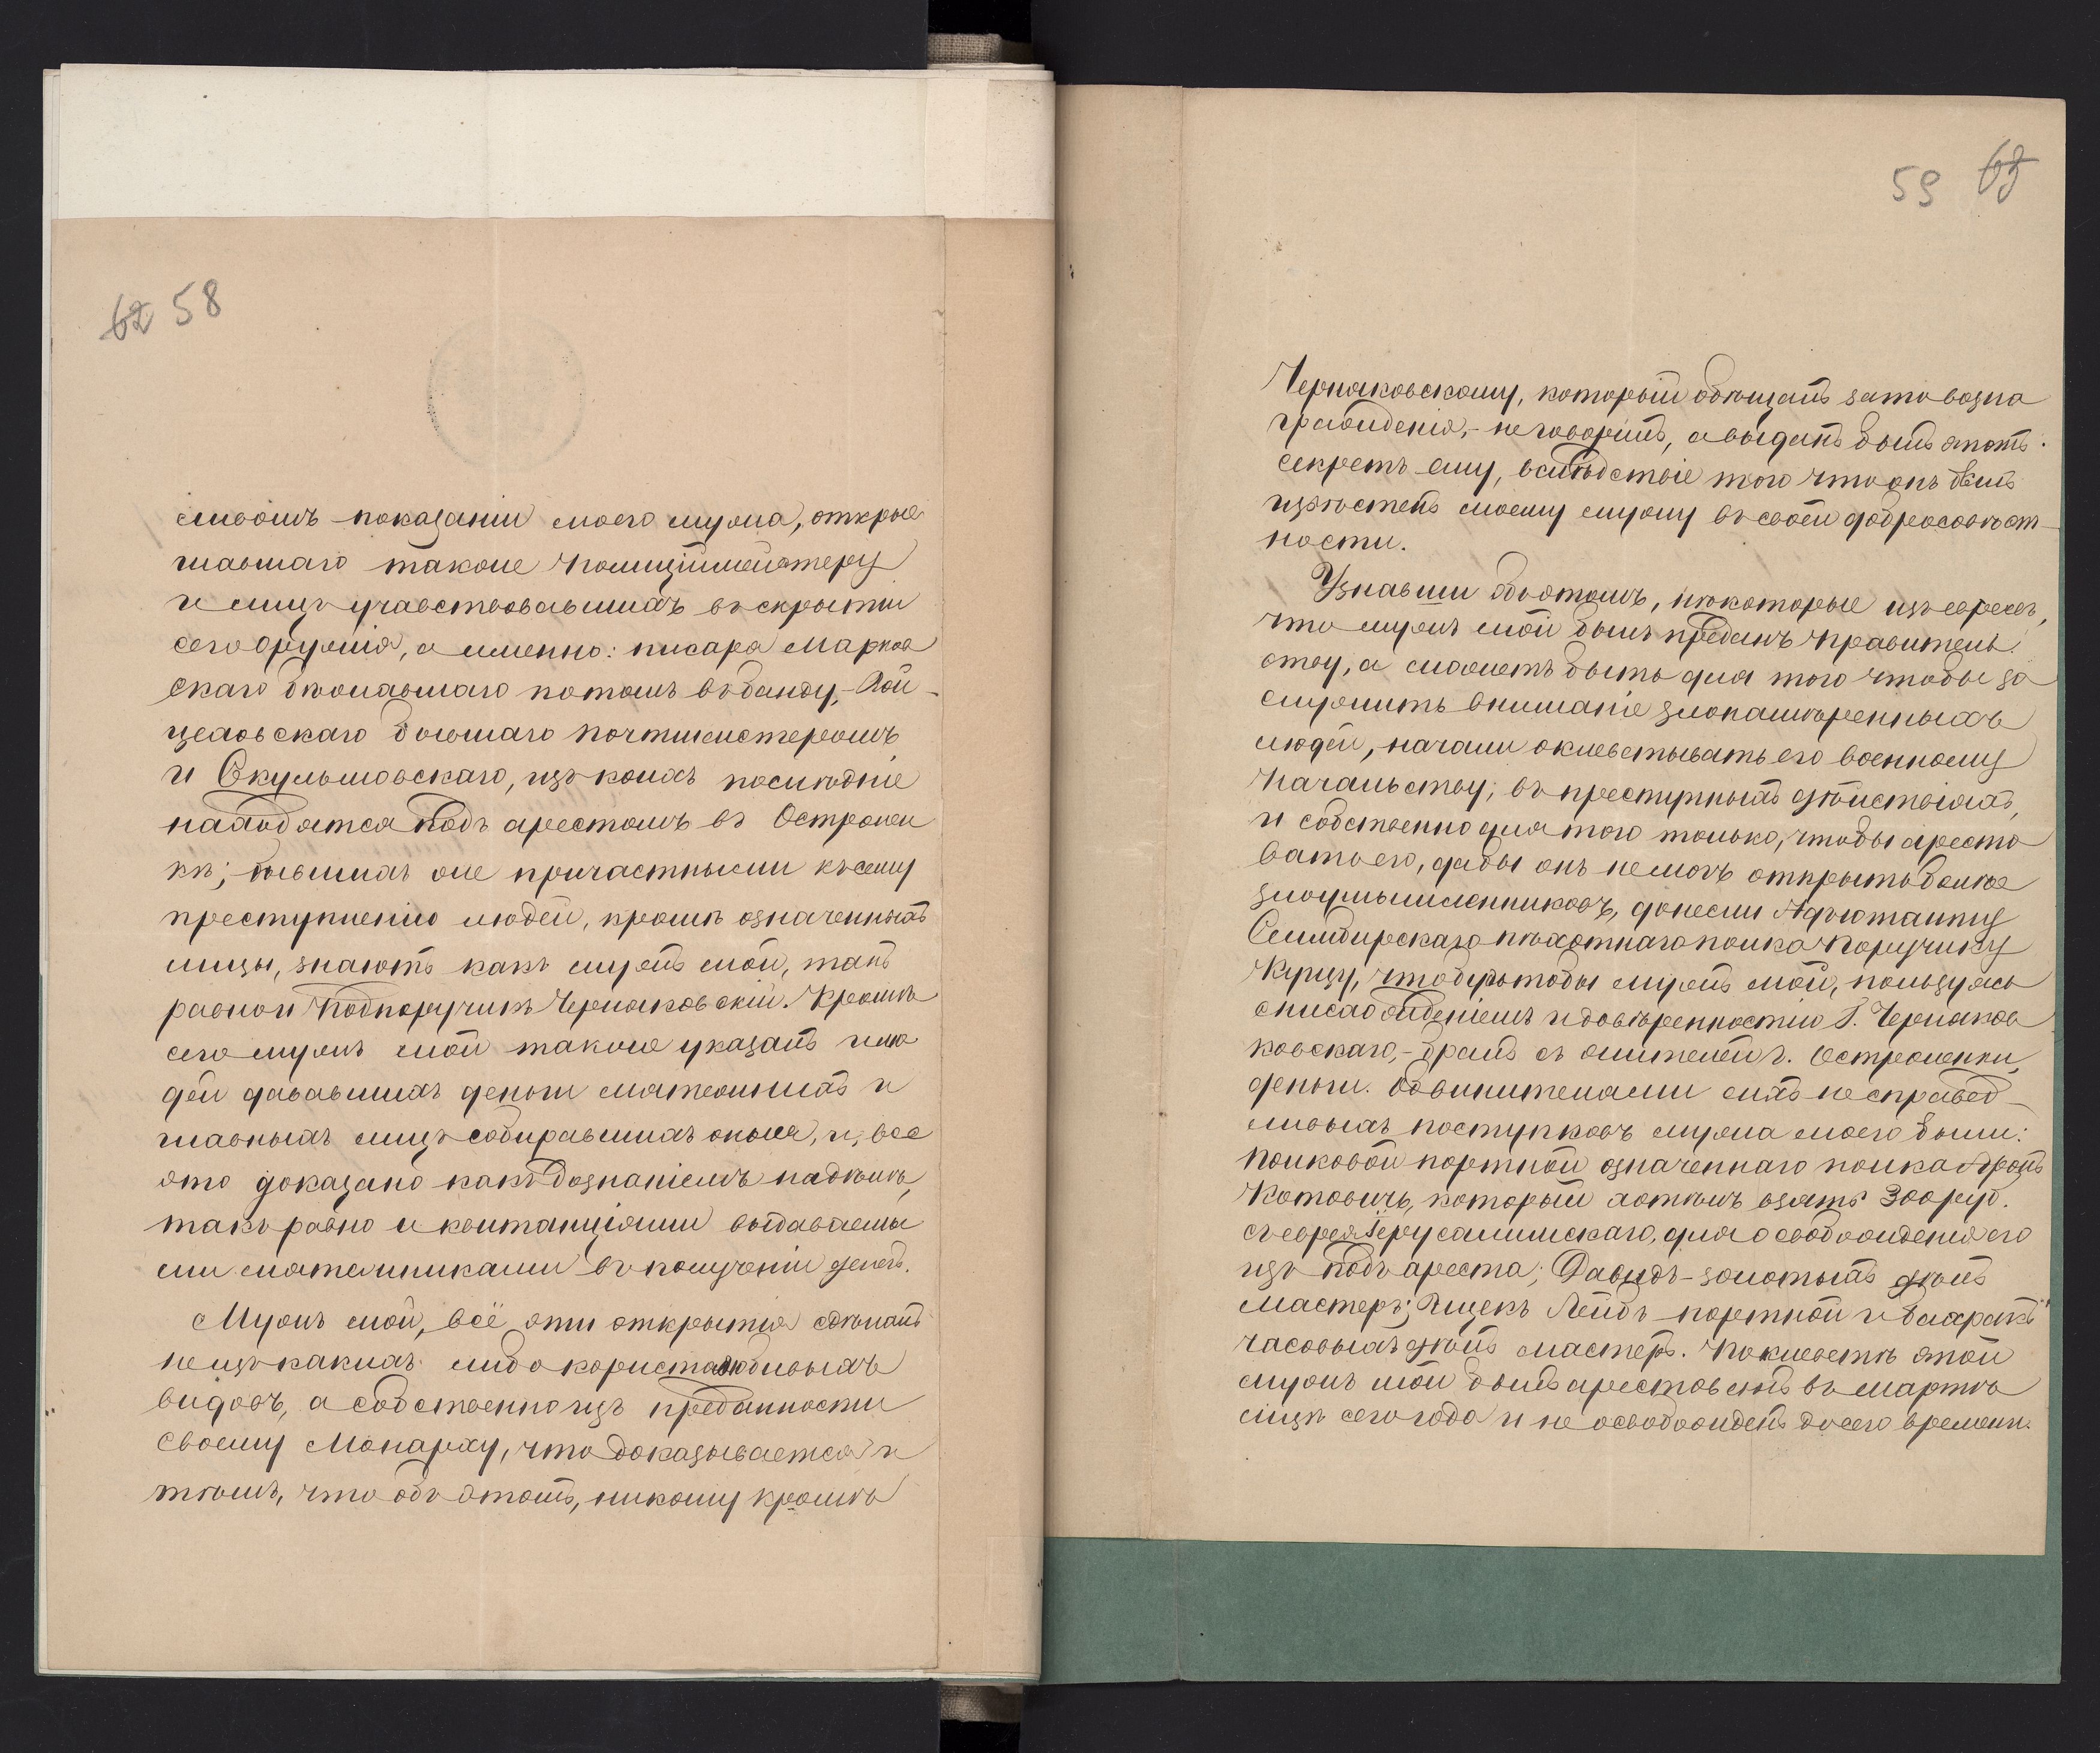 62 58
ливомъ показаніи моего мужа, открыв
шавшаго также Полиціймейстеру
и лицъ участвовавшихъ въ скрытіи
сего оружія, а именно: писаря Марков
скаго бѣжавшаго потомъ въ банду,-
цеховскаго бывшаго почтмистеромъ
и Скульмовскаго, изъ коихъ послѣдніе
находятся подъ арестомъ въ Остролен
кѣ; бывшихъ же причастными къ сему
преступленію людей, кромѣ означенныхъ
лицъ, знаютъ какъ мужъ мой, такъ
равно и Подпоручикъ Черняковскій. Кромѣ
сего мужъ мой также указалъ и лю
дей дававшихъ деньги мятежникамъ и
главныхъ лицъ собиравшихъ оныя, и, все
это доказано какъ дознаніемъ надъ нимъ,
такъ равно и квитанціями выдаваемы
ми мятежниками въ полученіи денегъ.
Мужъ мой, всё эти открытія сдѣлалъ
не изъ какихъ либо користолюбивыхъ
видовъ, а собственно изъ преданности
своему Монарху, что доказывается и
тѣмъ, что объ этомъ, никому кромѣ
59 63
Черняковскому, который обѣщалъ за то возна
гражденія,- не говорилъ, а выданъ былъ этотъ
секретъ ему, вслѣдствіе того что онъ былъ
извѣстенъ моему мужу въ своей добросовѣст-
ности.
Узнавши объ этомъ, нѣкоторые изъ евреевъ,
что мужъ мой былъ преданъ Правитель
ству, а можетъ быть для того чтобы за
служить вниманіе злонамѣренныхъ
людей, начали оклевѣтывать его военному
Начальству; въ преступныхъ дѣйствіяхъ,
и собственно для того только, чтобы аресто
вать его, дабы онъ не могъ открыть болѣе
злоумышленниковъ, донесли Адъютанту
Симбирскаго пѣхотнаго полка Поручику
Курцу, что будьтобы мужъ мой, пользуясь
снисхожденіемъ и довѣренностію Г. Черняков
ковскаго,- бралъ съ жителей г. Остроленки,
деньги. Обвинителями сихъ несправед-
ливыхъ поступковъ мужа моего были:
полковой портной означеннаго полка Аронъ
Котовичъ, который хотѣлъ взять 300 руб.
съ еврея Іерусалимскаго, для освобожденія его
изъ подъ ареста; Давидъ - золотыхъ дѣлъ
мастеръ; Ицекъ Лейбъ портной и
часовыхъ дѣлъ мастеръ. По клеветѣ этой
мужъ мой былъ арестованъ въ мартѣ
мцѣ сего года и не освобожденъ до сего времени.